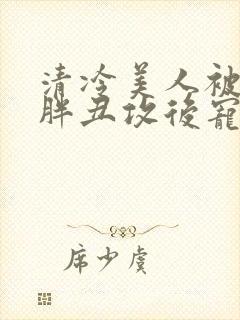 清冷美人被
胖丑攻後寵
席少虞